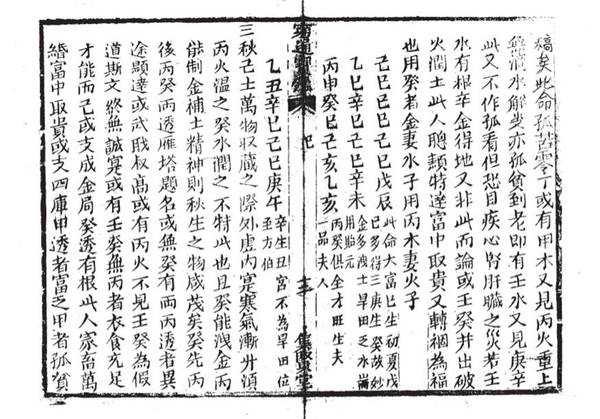 槁矣此命孤苦零丁或有甲木又見丙火重上
無滴水解炎亦孤貧到老即有壬水又見庚辛
此又不作孤看但恐目疾心腎肝臟之災若壬
水有根辛金得地又非此而論或壬癸并出破
火潤土此人聰穎特達富中取貴又轉禍為福
也用癸者金妻水子用丙木妻火子
己巳己巳己巳戊辰 此命大富巳生初夏戊
巳多得三庚生癸故妙
乙巳辛巳己巳辛未 金多洩土旱田乏水耑
用胎元
丙申癸巳己亥乙亥 丙癸俱全才旺生夫
一品夫人
窮通寶鑑 己
乙丑辛巳己巳庚午 辛生丑宮不為旱田位
至方伯
三秋己土萬物收藏之際外虛內寔寒氣漸升須
丙火溫之癸水潤之不特此也且癸能洩金丙
能制金補土精神則秋生之物咸茂矣癸先丙
後丙癸兩透雁塔題名或無癸有兩丙透者異
途顯達或武職叔高或有丙火不見壬癸為假
道斯文終無誠寔或有壬癸無丙者衣食充足
才能而已或支成金局癸透有根此人家畜萬
緡富中取貴或支四庫甲透者富乏甲者孤貧